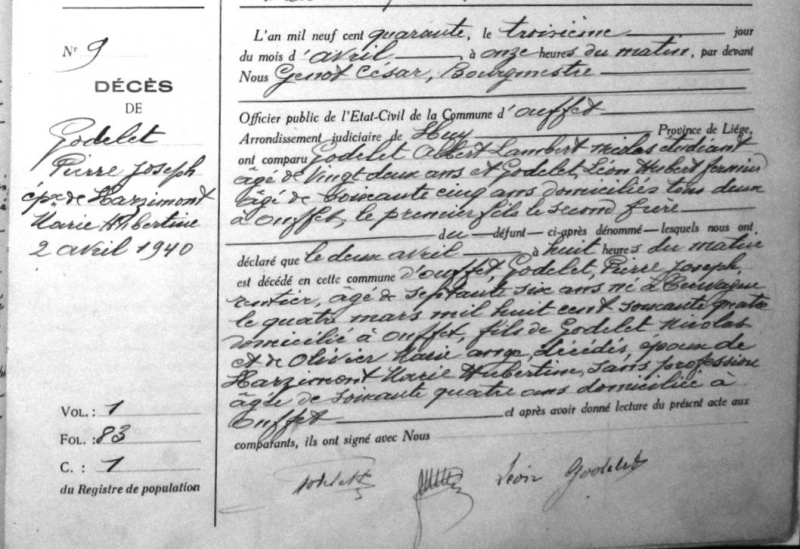 Nr 9
DÉCÈS
DE
Godelet
Pierre Joseph
épx de Harzimont
Marie Hubertine
2 avril 1940
VOL. : 1
FOL. : 83
C. : 1
du Registre de population
L'an mil neuf cent quarante, le troisième jour
du mois d'avril, à onze heures du matin, par devant
Nous Genot César, Bourgmestre
Officier public de l'Etat-Civil de la Commune d'Ouffet
Arrondissement judiciaire de Huy Province de Liége,
ont comparu Godelet Albert Lambert Nicolas étudiant
âgé de Vingt deux ans et Godelet, Léon Hubert fermier
âgé de soixante cinq ans domiciliés tous deux
à Ouffet, le premier fils le second frère
du défunt ci-après dénommé lesquels nous ont
déclaré que le deux avril à huit heures du matin
est décédé en cette commune d'Ouffet, Godelet, Pierre Joseph,
rentier, âgé de septante six ans né à Terwagne
le quatre mars mil huit cent soixante quatre
domicilié à Ouffet, fils de Godelet Nicolas
et de Olivier Marie ange, décédés, époux de
Harzimont Marie Hubertine, sans profession
âgée de soixante quatre ans domiciliée à
Ouffet et après avoir donné lecture du présent acte aux
comparants, ils ont signé avec Nous
Léon Godelet